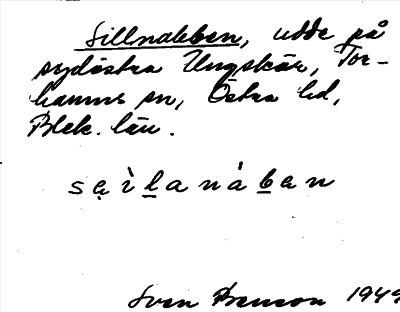 Sillnabben, udde på
sydöstra Ungskär, Tor-
hamns sn, Östra hd,
Blek. län.
sęìḷanábęn
Sven Benson 1949